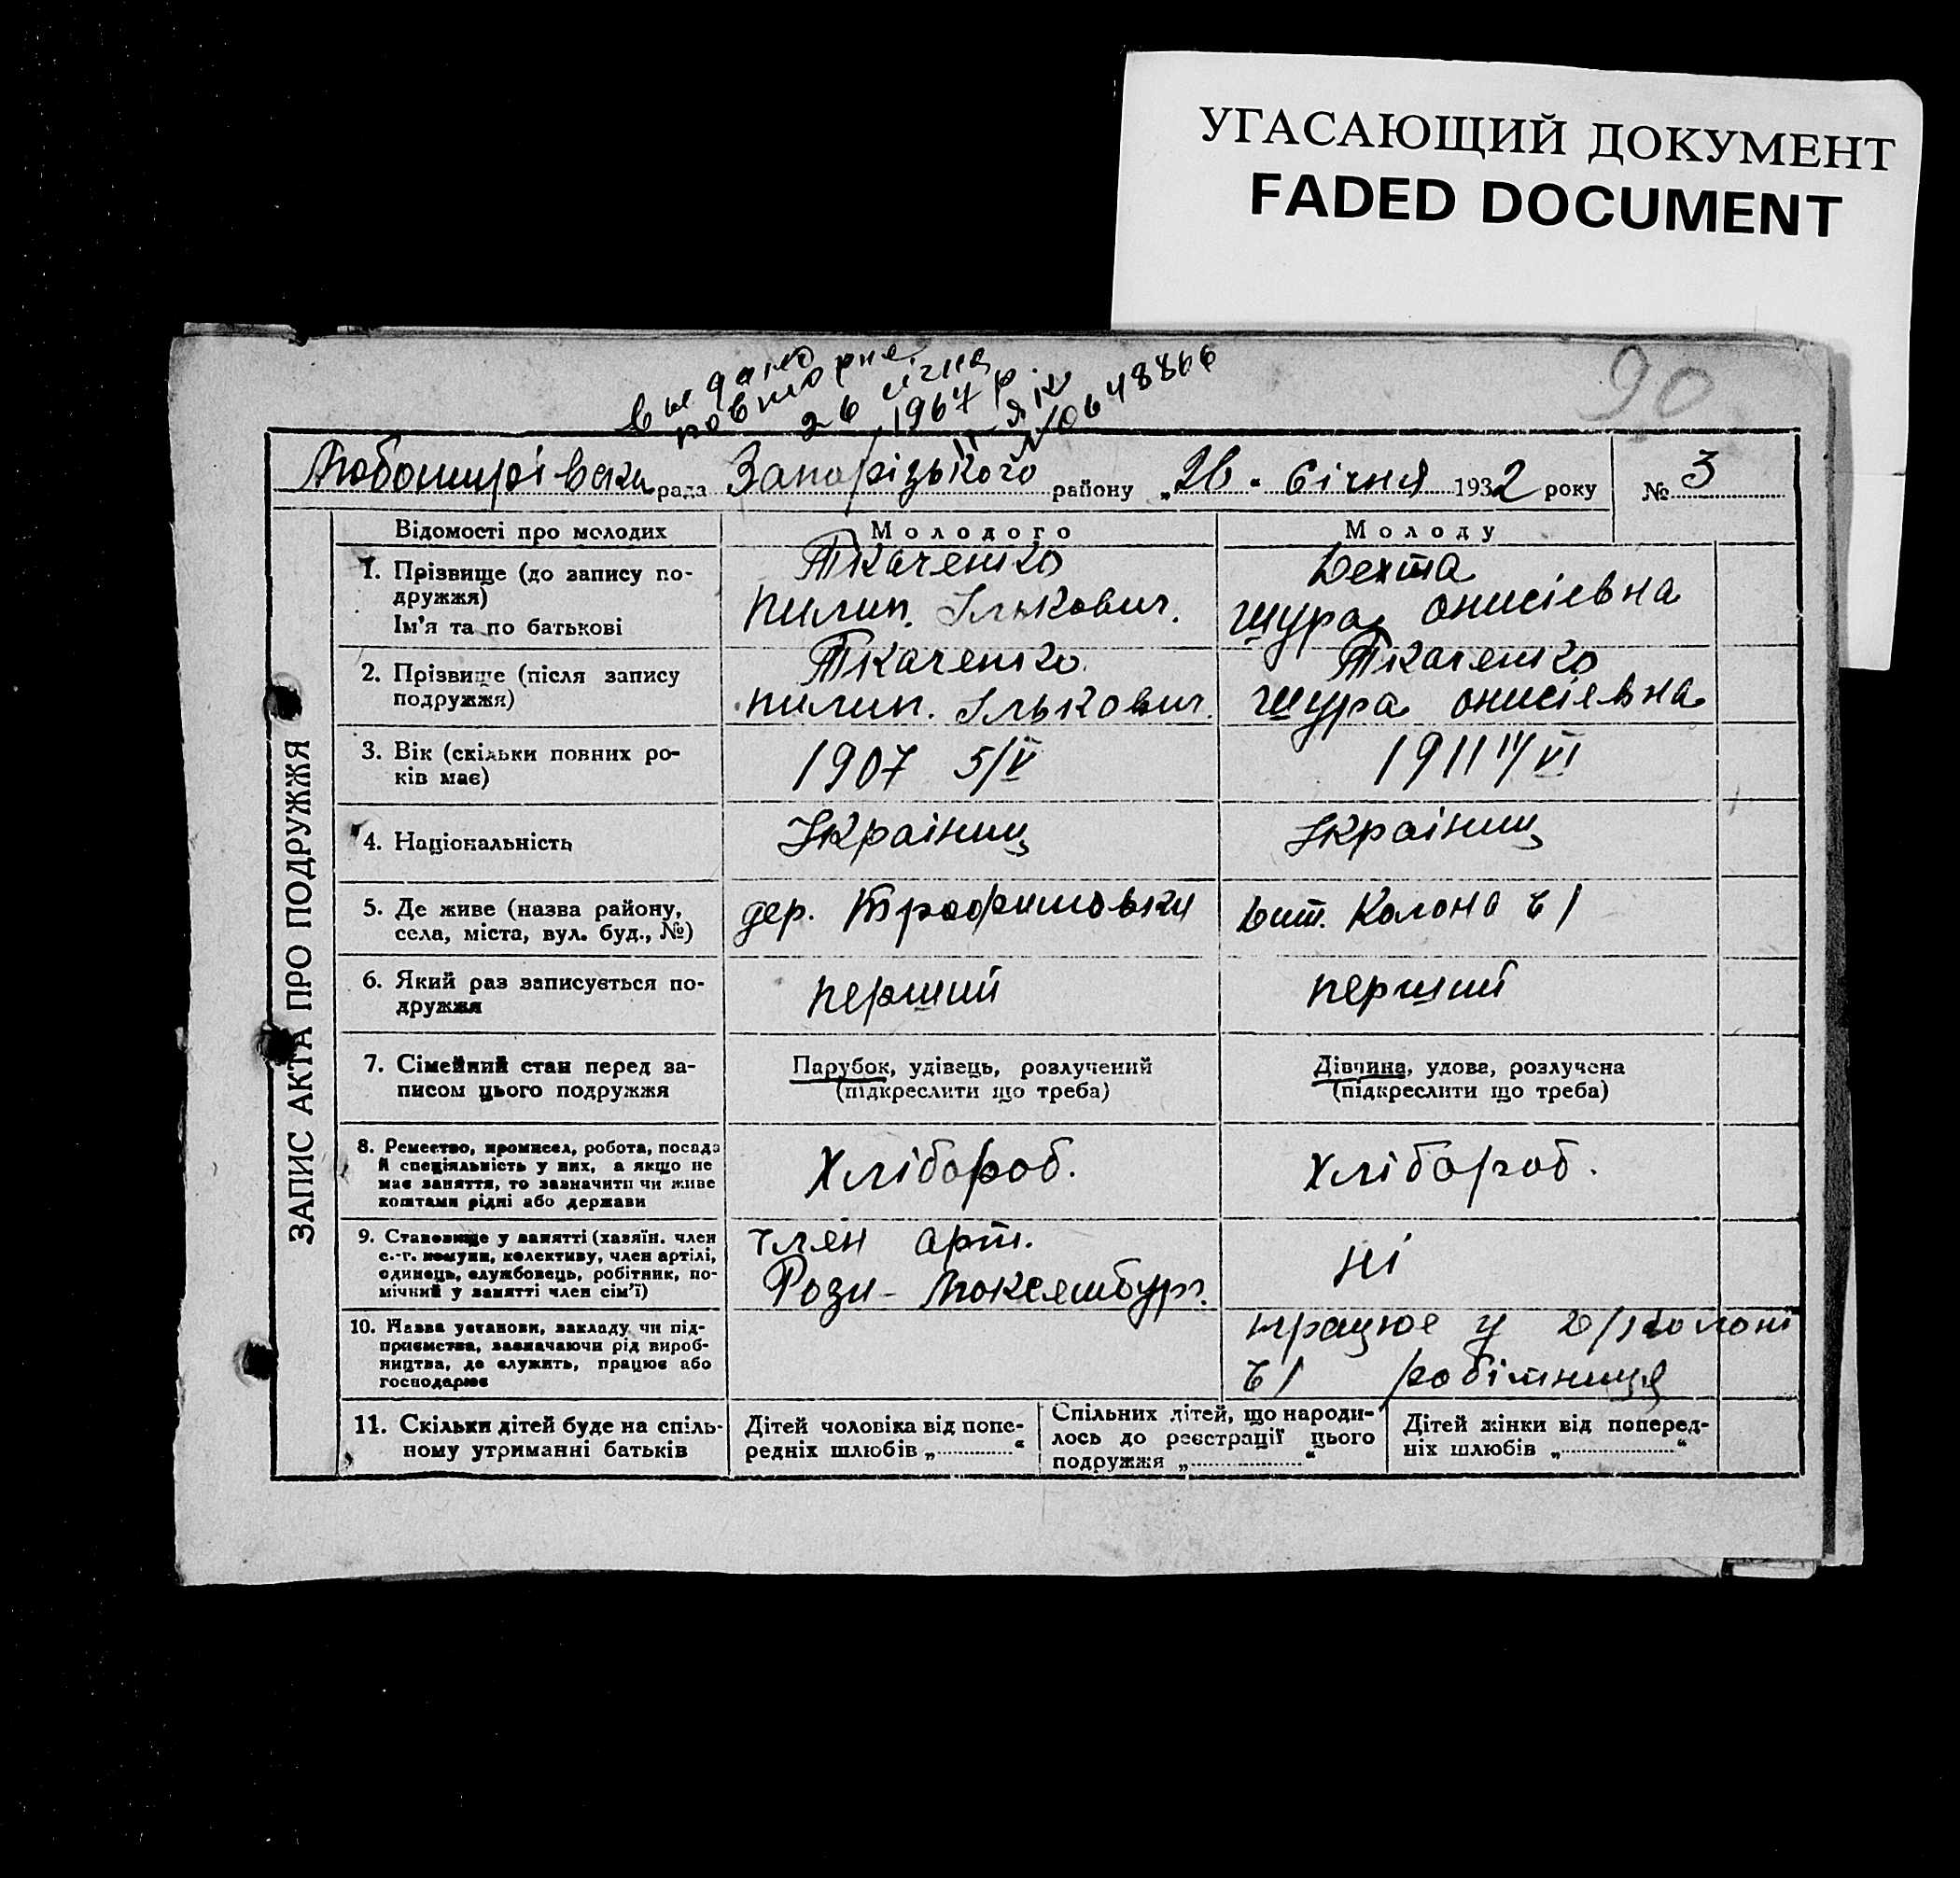 УГАСАЮЩИЙ ДОКУМЕНТ
FADED DOCUMENT
90
видано
повторне
26 січня
1967 р.
II ЯП
№ 0648866
Любомирівська рада Запорізького району „26“ січня 1932 року № 3
ЗАПИС АКТА ПРО ПОДРУЖЖЯ
Відомості про молодих Молодого Молоду
1. Прізвище (до запису по-
дружжя)
Ім'я та по батькові
Ткаченко
Пилип. Ількович.
Дехта
Шура Онисіевна
2. Прізвище (після запису
подружжя)
Ткаченко
Пилип. Ількович.
Ткаченко
Шура Онисіевна
3. Вік (скільки повних ро-
ків має)
1907 5/V
1911 11/VI
4. Національність
Українц
Українц
5. Де живе (назва району,
села, міста, вул. буд., №)
дер. Трофимовки
Колона ч 1
6. Який раз записується по-
дружжя
перший
перший
7. Сімейний стан перед за-
писом цього подружжя
Парубок, удівець, розлучений
(підкреслити що треба)
Дівчина, удова, розлучена
(підкреслити що треба)
8. Ремество, промисел, робота, посада
й спеціяльність у них, а якщо не
має заняття, то зазначити чи живе
коштами рідні або держави
Хлібороб.
Хлібороб.
9. Становище у занятті (хазяїн. член
с.-г. комуни, колективу, член артілі,
одинець, службовець, робітник, по-
мічний у занятті член сім'ї)
член арт.
Рози - Люксембург.
ні
10. Назва установи, закладу чи під-
приємства, зазначаючи рід вироб-
ництва, де служить, працює або
господарює
працює у колоні
ч 1 робітниця
11. Скільки дітей буде на спіль-
ному утриманні батьків
Дітей чоловіка від попе-
редніх шлюбів „..............“
Спільних дітей, що народи-
лось до реєстрації цього
подружжя „....................“
Дітей жінки від поперед-
ніх шлюбів „....................“